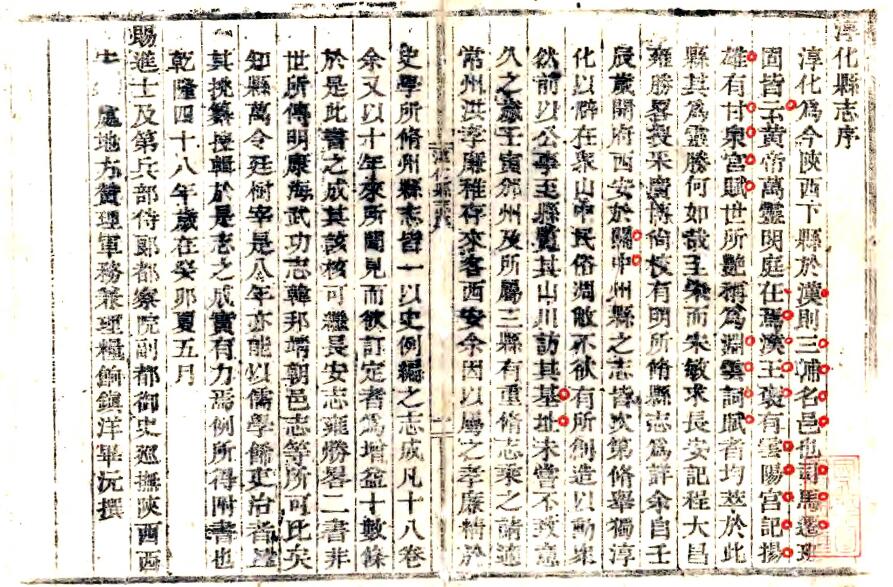 淳化縣志序
淳化為今陝西下縣於漢則三浦名邑也司馬遷班
固皆云黃帝萬靈明庭在焉漢王褒有雲陽宮記揚
雄有甘泉宮賦世所艷稱為淵雲詞賦者均萃於此
縣其為靈勝何如哉王宋而宋敏求長安記程大昌
雍勝畧 廣博尚 有明所脩縣志為詳余自壬
辰歲開府西安於關中州縣之志皆次第脩舉獨淳
化以僻在眾山中民俗凋敝不欲有所創造以動眾
然前以公事至縣覽其山川訪其基址未嘗不致意
久之 壬寅邠州及所屬三縣有重脩志乘之請適
常州洪孝廉稚存來客西安余因以屬之孝廉精於
史學所脩州縣志皆一以史例編之志成凡十八卷
余又以十年來所聞見而欲訂定者為增益十數條
於是此書之成其該核可繼長安志雍勝畧二書非
世所傳明康海武功志韓邦靖朝邑志等所可比矣
知縣萬令廷樹宰是八年亦能以儒學餙吏治者
其 纂 輯於是志之成實有力焉例所得附書也
乾隆四十八年歲在癸卯夏五月
賜進士及第兵部侍郎都察院副都御史巡撫陝西西
安 處地方贊理軍務兼理糧餉鎮洋畢沅撰